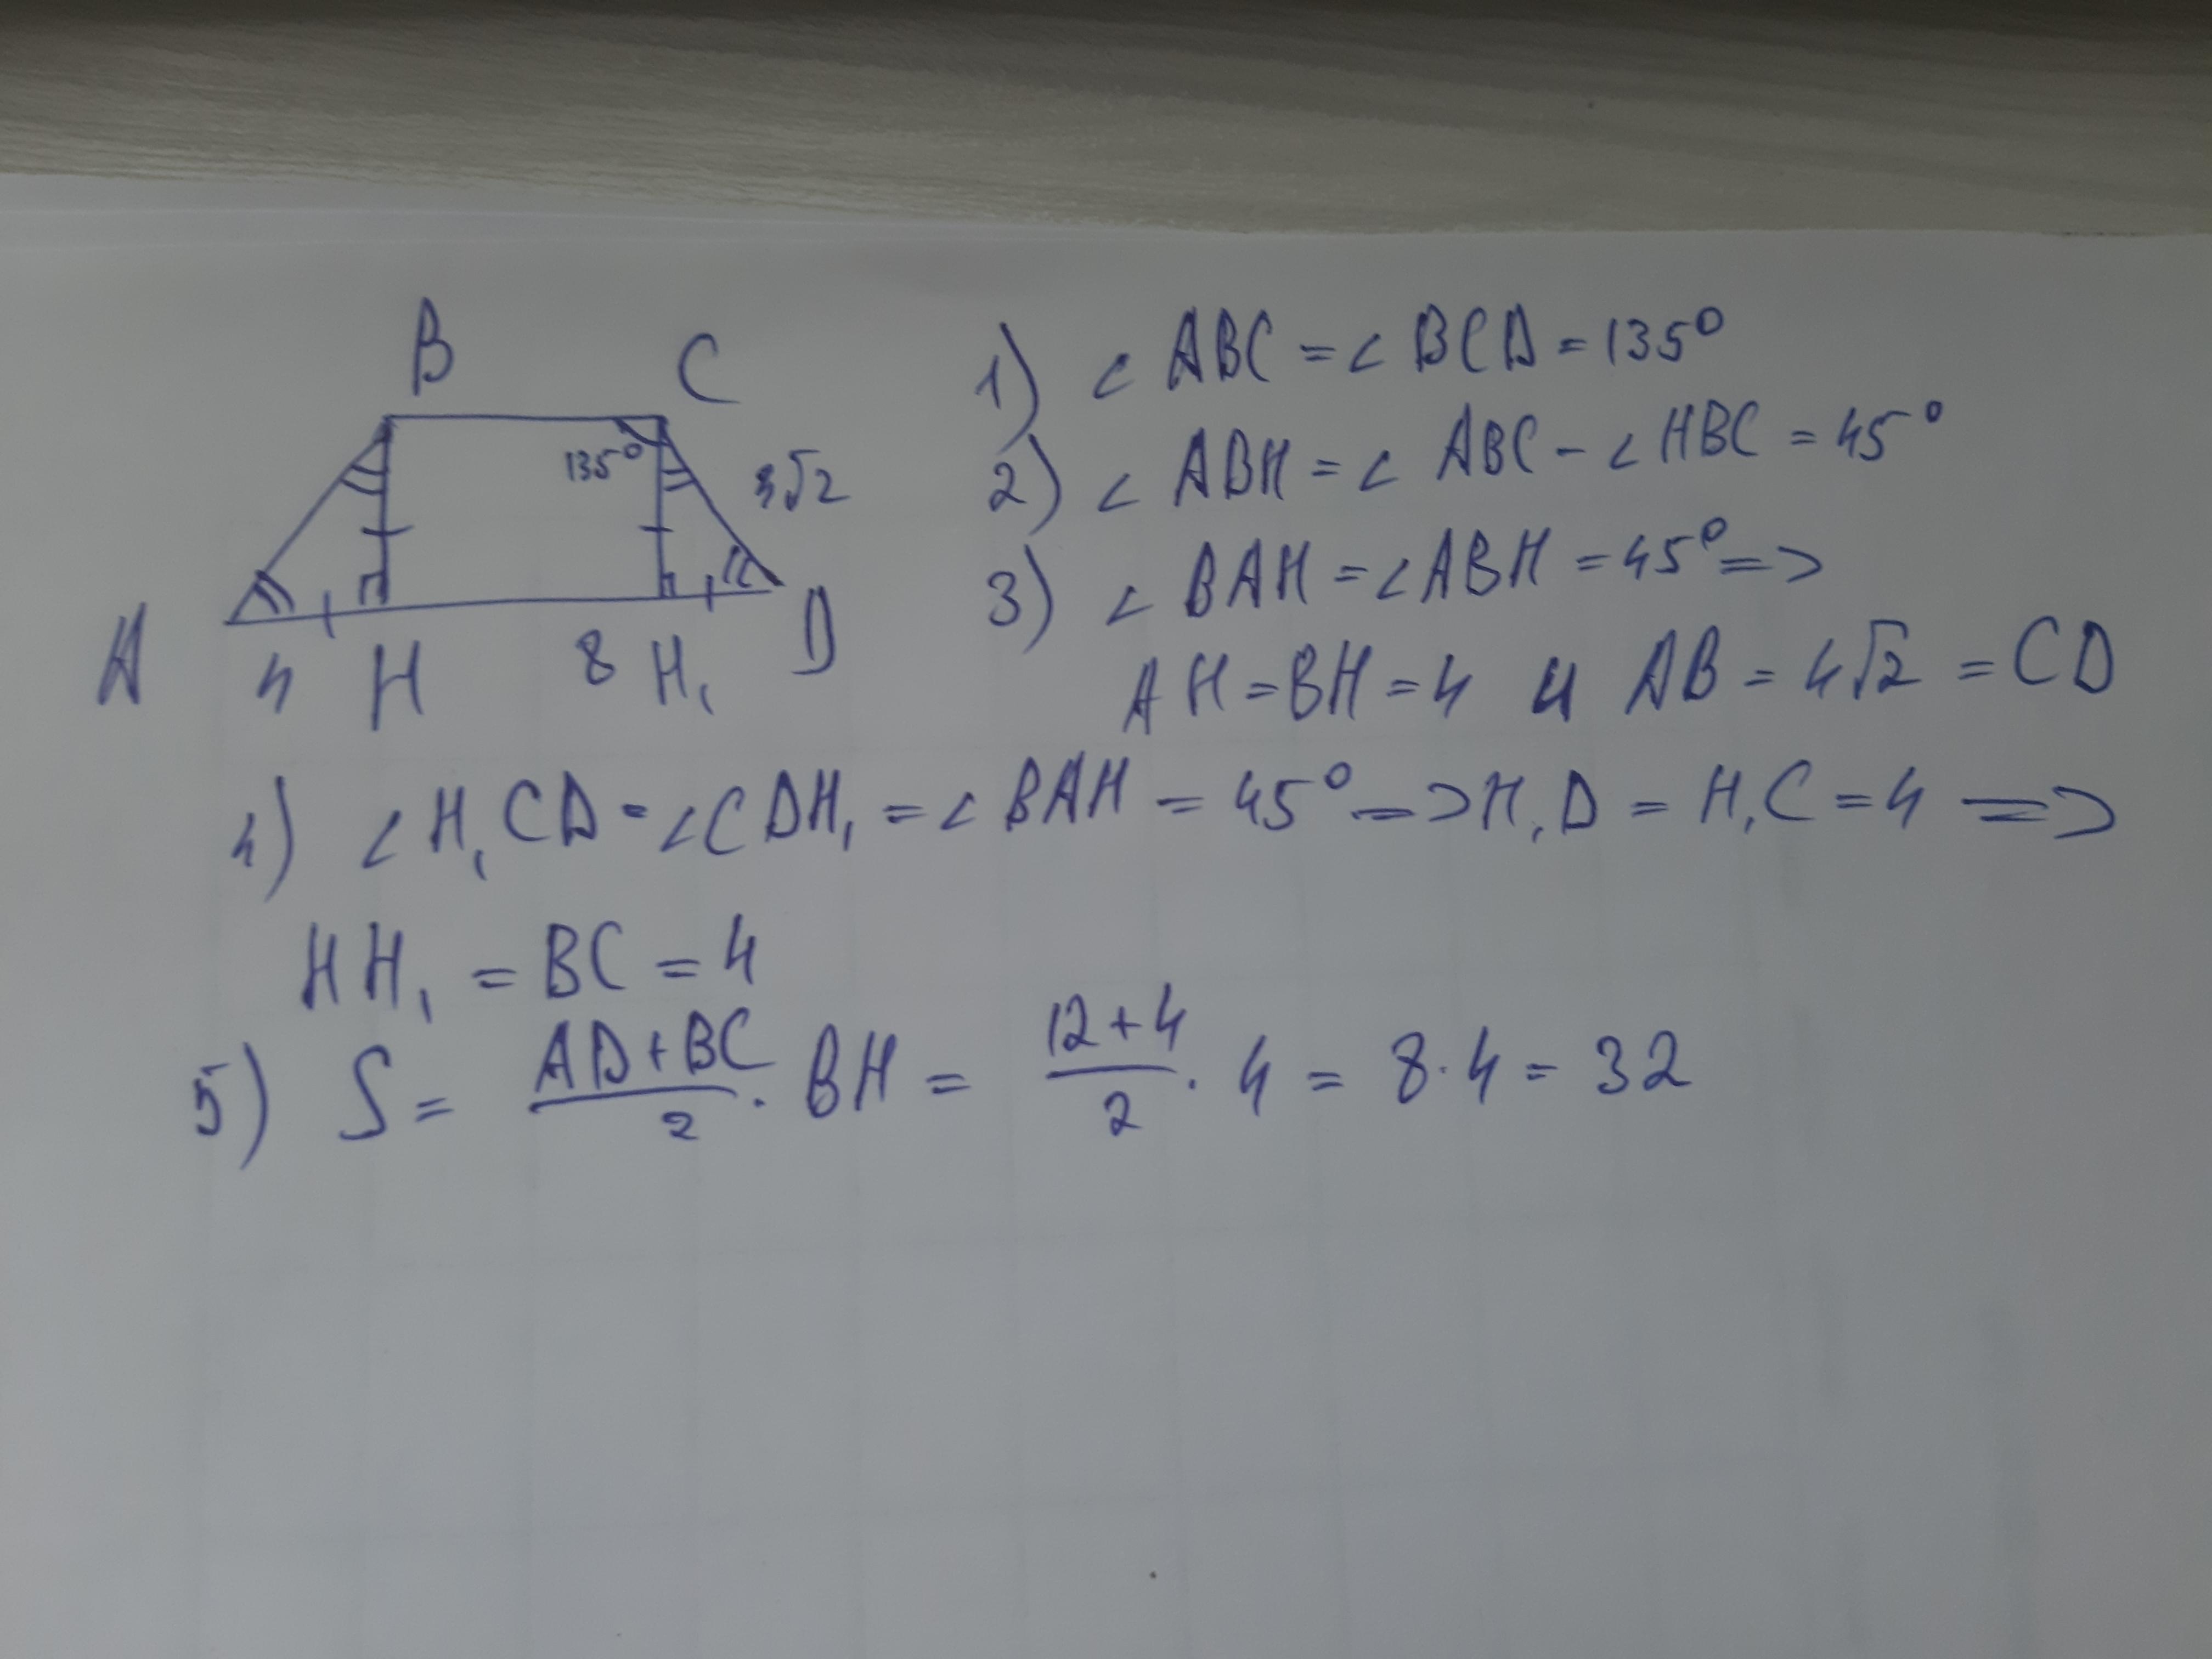 B C
135° 4√2
A 4 H 8 H₁ D
1) ∠ ABC = ∠ BCD = 135°
2) ∠ ABH = ∠ ABC - ∠ HBC = 45°
3) ∠ BAH = ∠ ABH = 45° =>
AH = BH = 4 и AB = 4√2 = CD
4) ∠ H₁CD = ∠CDH₁ = ∠ BAH = 45° => H₁D = H₁C = 4 =>
HH₁ = BC = 4
5) S = (AD + BC)/2 · BH = (12 + 4)/2 · 4 = 8 · 4 = 32